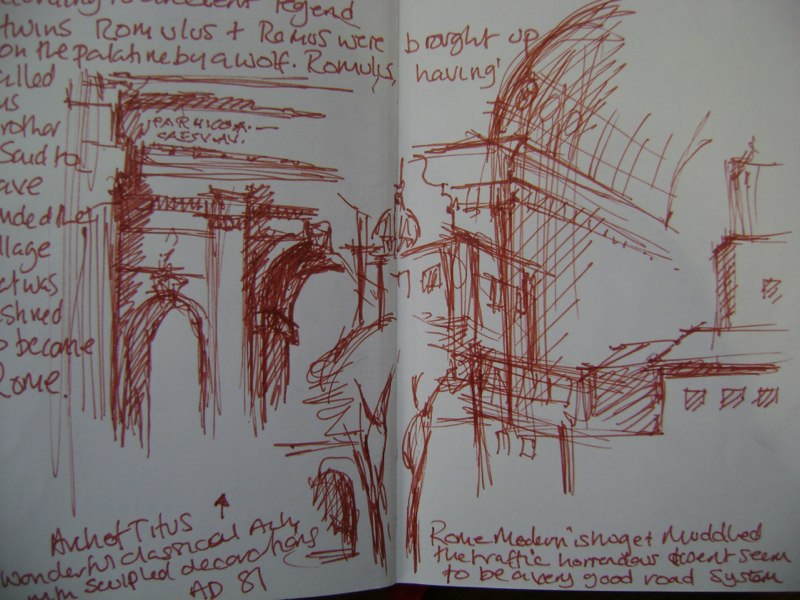 according to ancient legend
twins Romulus + Remus were brought up
on the palatine by a wolf. Romulus, having
killed
his
brother
Said to
have
founded the
village
that was
destined
to become
Rome.
PARTHICO
Arch of Titus
wonderful classical Arch
with sculpted decorations
AD 81
Rome Modern is huge + Muddled
the traffic horrendous doesnt seem
to be a very good road System